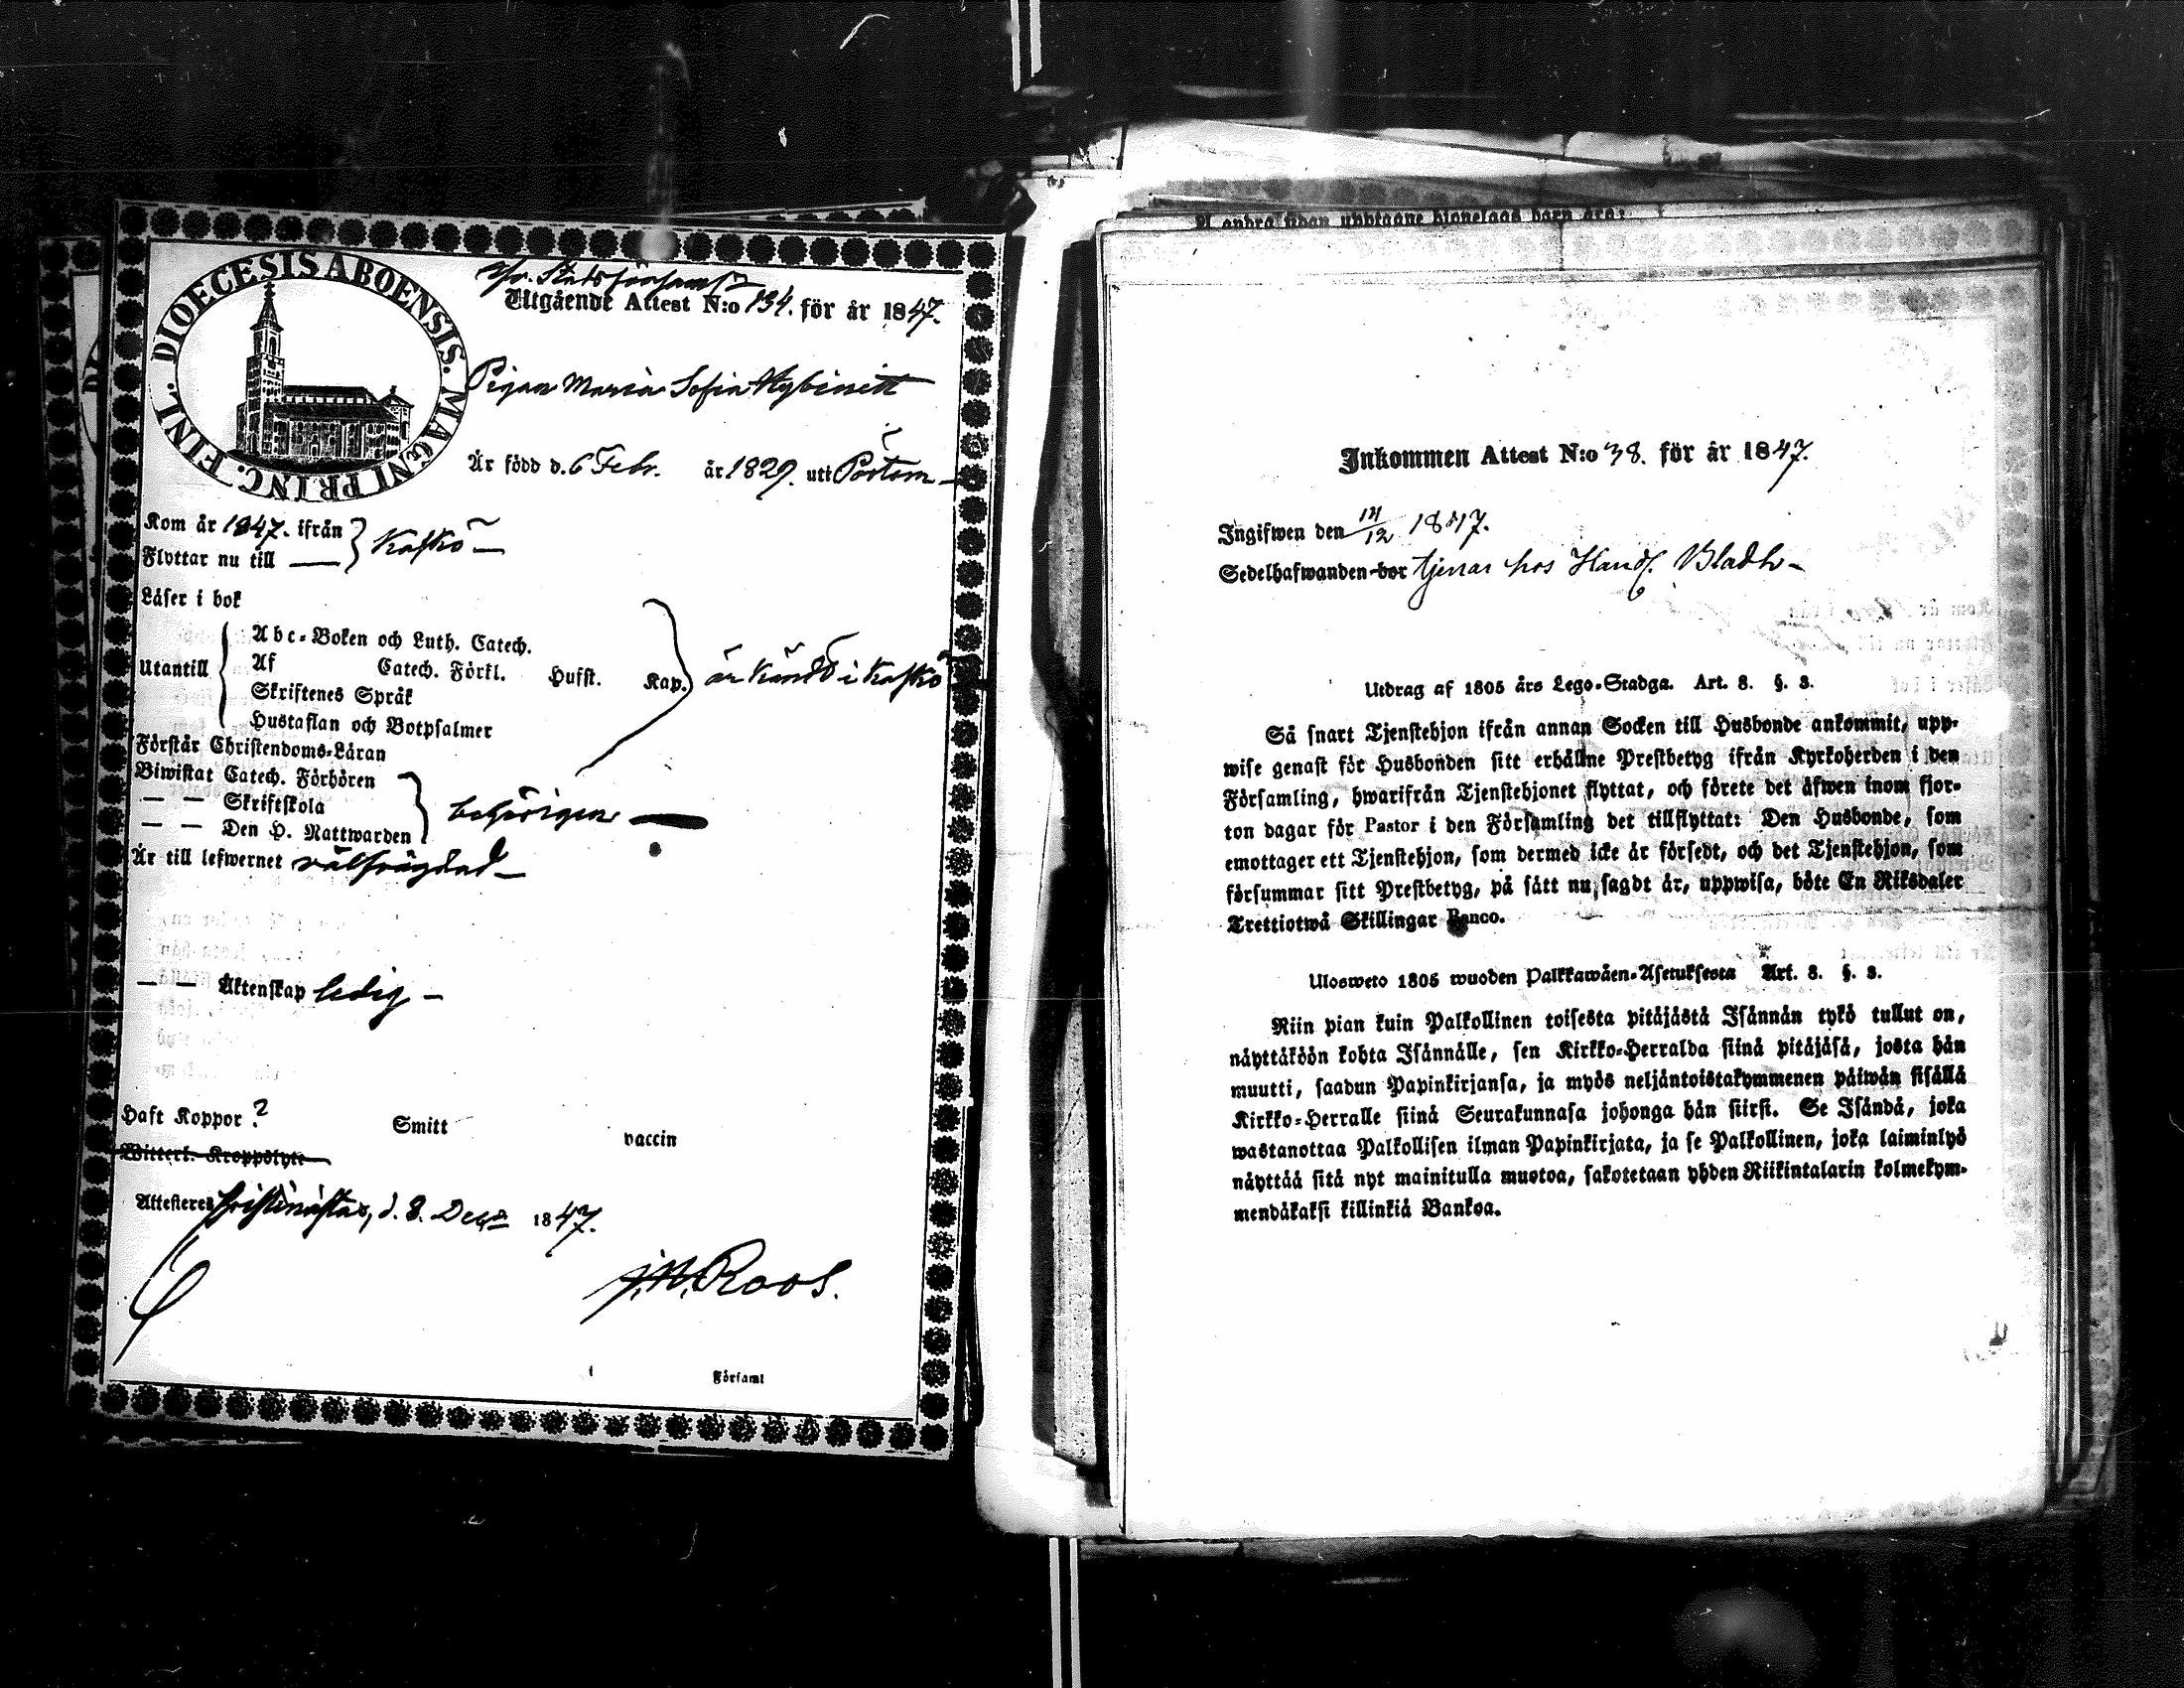 DIOECESIS ABOENSIS. MAGNI PRINC. FINL.
Utgående Attest N:o 134. för år 1847.
Pigan Maria Sofia Nybinett
Är född d. 6 Febr. år 1829. uti Pörtom —
Kom år 1847. ifrån } Kaskö —
Flyttar nu till —
Läser i bok
Abc-Boken och Luth. Catech.
Utantill { Af Catech. Förkl. Husst. Kap. } är känd i Kaskö
Skriftenes Språk
Hustaflan och Botpsalmer
Förstår Christendoms-Läran
Biwistat Catech. Förhören
— — Skriftskola } behörigen —
— — Den H. Nattwarden
Är till lefwernet välfräjdad —
— — Äktenskap ledig —
Haft Koppor ? Smitt vaccin
Witterl. Kroppslyte
Attesteras Christinæstad, d. 8. Dec. 1847.
J.N. Roos.
Församl
Å andra sidan upptagne hjonelags barn äro:
Inkommen Attest N:o 38. för år 1847.
Ingifwen den 14/12 1847.
Sedelhafwanden bor tjenar hos Handl. Bladh —
Utdrag af 1805 års Lego-Stadga. Art. 8. §. 3.
Så snart Tjenstehjon ifrån annan Socken till Husbonde ankommit, upp-
wise genast för Husbonden sitt erhållne Prestbetyg ifrån Kyrkoherden i den
Församling, hwarifrån Tjenstehjonet flyttat, och förete det äfwen inom fjor-
ton dagar för Pastor i den Församling det tillflyttat: Den Husbonde, som
emottager ett Tjenstehjon, som dermed icke är försedt, och det Tjenstehjon, som
försummar sitt Prestbetyg, på sätt nu sagdt är, uppwisa, böte En Riksdaler
Trettiotwå Skillingar Banco.
Ulosweto 1805 wuoden Palkkawäen-Asetuksesta Art. 8. §. 3.
Niin pian kuin Palkollinen toisesta pitäjästä Isännän tykö tullut on,
näyttäköön kohta Isännälle, sen Kirkko-Herralda siinä pitäjäsä, josta hän
muutti, saadun Papinkirjansa, ja myös neljäntoistakymmenen päiwän sisällä
Kirkko-Herralle siinä Seurakunnasa johonga hän siirsi. Se Isändä, joka
wastanottaa Palkollisen ilman Papinkirjata, ja se Palkollinen, joka laiminlyö
näyttää sitä nyt mainitulla muotoa, sakotetaan yhden Riikintalarin kolmekym-
mendäkaksi killinkiä Bankoa.